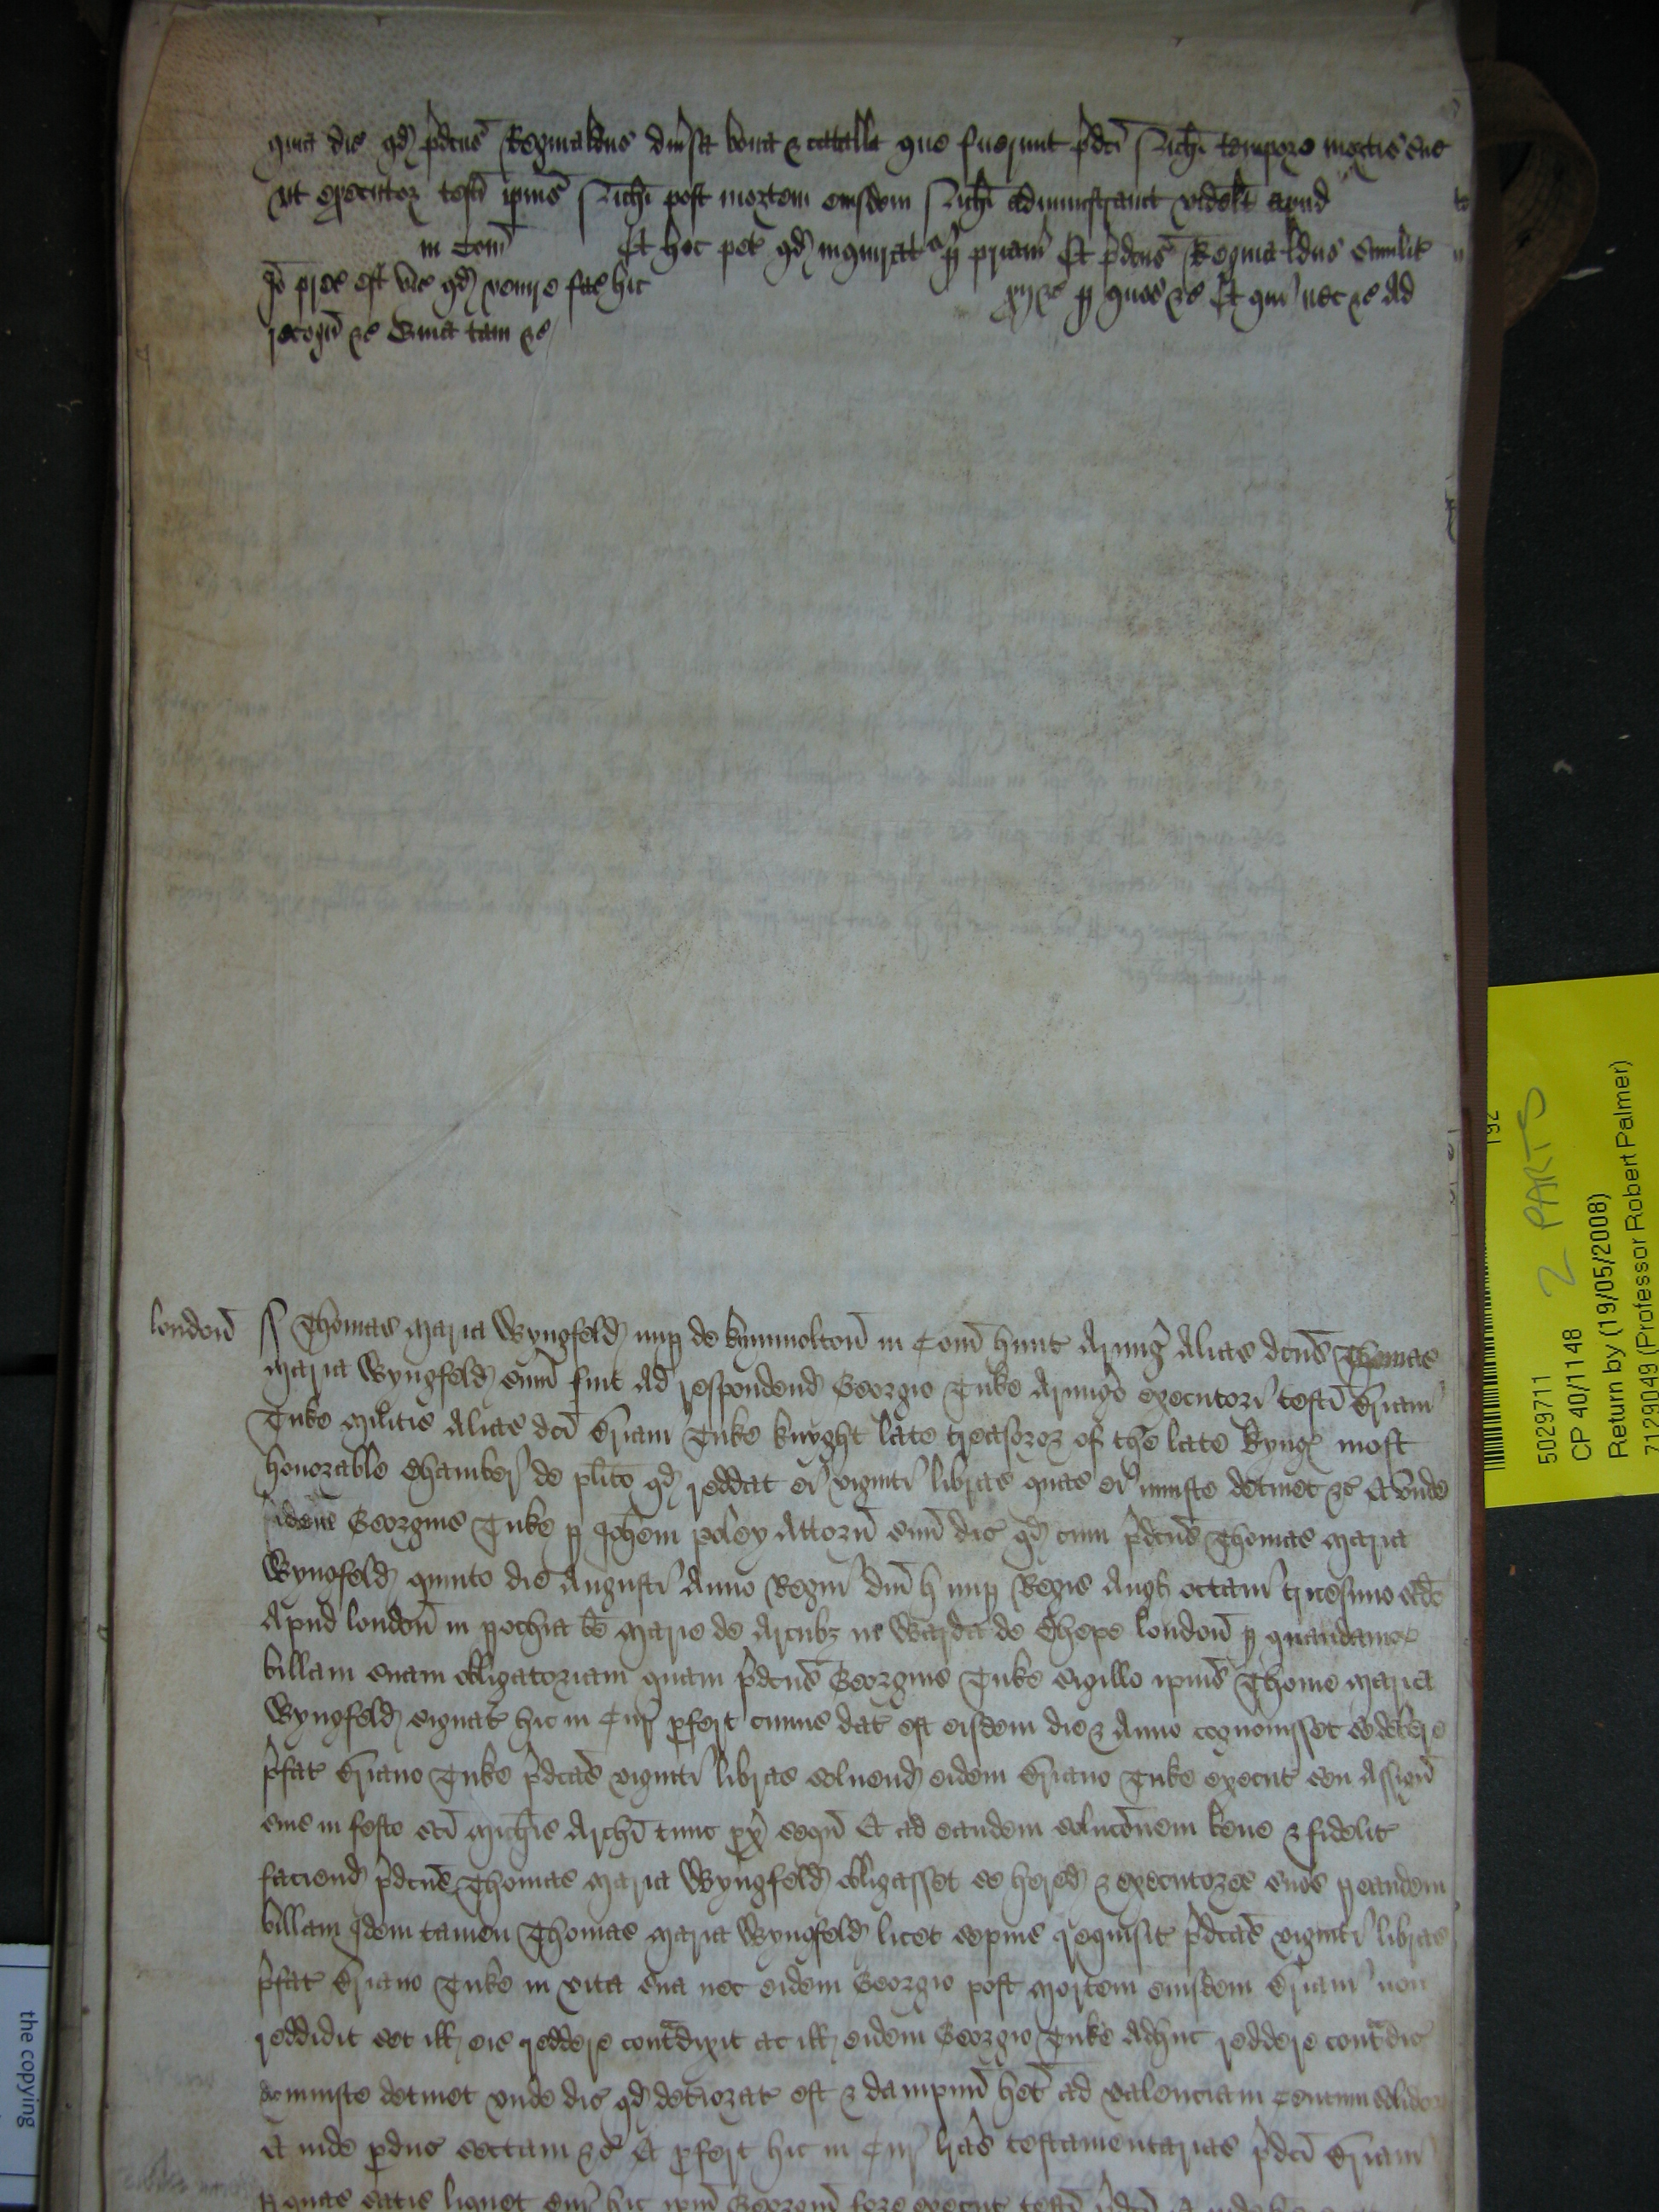 quia dic qd pdcus Reginaldus diusa bona & catalla que fuerunt pdci Richi tempore mortis sue
ut executor testi ipius Richi post mortem eiusdem Richi administrauit videlt apud
in Com Et hoc pet qd inquirat p priam Et pdcus Reginaldus similit
Io prec est vic qd venire fac hic p quos &c Et qui nec &c Ad
recogn &c Quia tam &c
london Thomas Maria Wyngfeld nup de Kymmolton in Com Hunt Armig Alias dcus Thomas
Maria Wyngfeld sum fuit Ad respondend Georgio Tuke Armigo executori testi Briani
Tuke Militis Alias dci Briani Tuke knyght late treasorer of the late Kynges most
honorable Chamber de plito qd reddat ei viginti libras quas ei iniuste detinet &c Et unde
idem Georgius Tuke p Johem Poley Attorn suu dic qd cum pdcus Thomas Maria
Wyngfeld quinto die Augusti Anno Regni dni H nup Regis Angl octaui tricesimo
Apud london in pochia be Marie de Arcubz in Warda de Chepe london p quandam
billam suam obligatoriam quam pdcus Georgius Tuke sigillo ipius Thome Maria
Wyngfeld signat hic in Cur pfert cuius dat est eisdem die & Anno cognouisset se debere
pfat Briano Tuke pdcas viginti libras soluend eidem Briano Tuke execut seu Assign
suis in festo sci Michis Archi tunc px sequ Et ad eandem solucoem bene & fidelit
faciend pdcus Thomas Maria Wyngfeld obligasset se hered & executores suos p eandem
billam Idem tamen Thomas Maria Wyngfeld licet sepius requisit pdcas viginti libras
pfat Briano Tuke in vita sua nec eidem Georgio post mortem eiusdem Briani non
reddidit set ill eis reddere contradixit ac ill eidem Georgio Tuke Adhuc reddere contradic
& iniuste detinet unde dic qd deteriorat est & dampnu het ad valenciam Centum solidor
Et inde pduc sectam &c Et pfert hic in Cur lras testamentarias pdci Briani
p quas satis liquet Cur hic ipm Georgiu fore execut testi
5029711
2 PARTS
CP 40/1148
Return by (19/05/2008)
7129049 (Professor Robert Palmer)
the copying